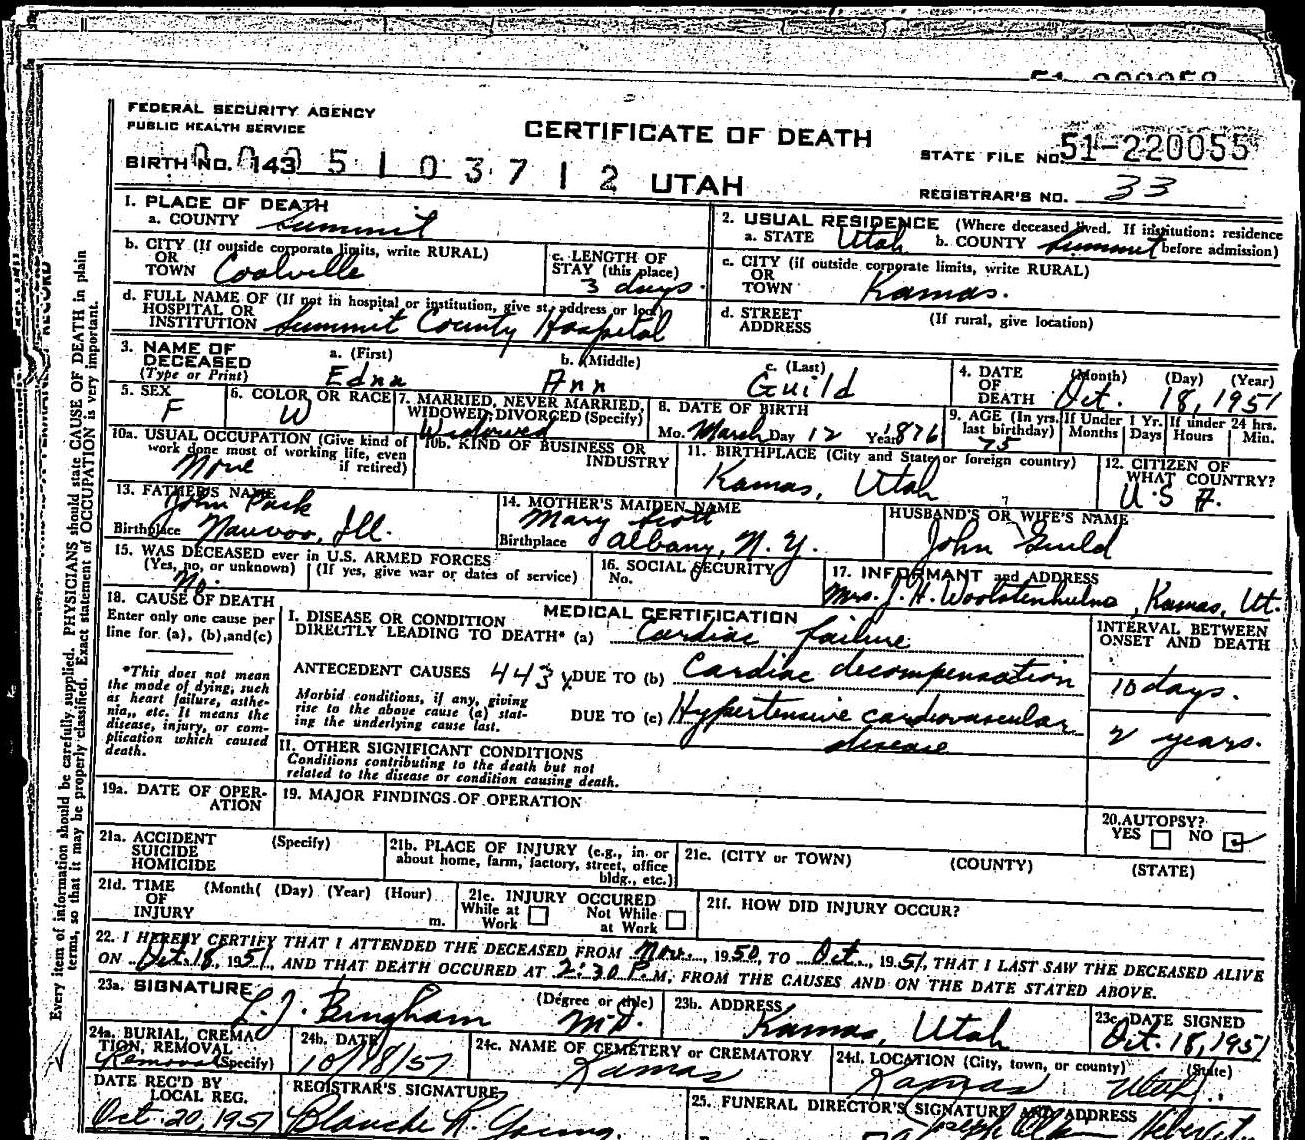 FEDERAL SECURITY AGENCY
PUBLIC HEALTH SERVICE
CERTIFICATE OF DEATH
STATE FILE NO. 51-220055
BIRTH NO. 143
0 0 0 5 1 0 3 7 1 2
UTAH
REGISTRAR'S NO. 33
1. PLACE OF DEATH
a. COUNTY Summit
2. USUAL RESIDENCE (Where deceased lived. If institution: residence before admission)
a. STATE Utah b. COUNTY Summit
b. CITY (If outside corporate limits, write RURAL)
OR
TOWN Coalville
c. LENGTH OF
STAY (this place)
3 days.
c. CITY (if outside corporate limits, write RURAL)
OR
TOWN Kamas.
d. FULL NAME OF (If not in hospital or institution, give st. address or loc)
HOSPITAL OR
INSTITUTION Summit County Hospital
d. STREET
ADDRESS
(If rural, give location)
3. NAME OF
DECEASED
(Type or Print)
a. (First)
Edna
b. (Middle)
Ann
c. (Last)
Guild
4. DATE
OF
DEATH
(Month) (Day) (Year)
Oct. 18, 1951
5. SEX
F
6. COLOR OR RACE
W
7. MARRIED, NEVER MARRIED,
WIDOWED, DIVORCED (Specify)
Widowed
8. DATE OF BIRTH
Mo. March Day 12 Year 1876
9. AGE (In yrs.
last birthday)
75
If Under 1 Yr.
Months Days
If under 24 hrs.
Hours Min.
10a. USUAL OCCUPATION (Give kind of
work done most of working life, even
if retired)
None
10b. KIND OF BUSINESS OR
INDUSTRY
11. BIRTHPLACE (City and State or foreign country)
Kamas, Utah
12. CITIZEN OF
WHAT COUNTRY?
U.S.A.
13. FATHER'S NAME
John Pack
Birthplace Nauvoo, Ill.
14. MOTHER'S MAIDEN NAME
Mary Scott
Birthplace Albany, N.Y.
HUSBAND'S OR WIFE'S NAME
John Guild
15. WAS DECEASED ever in U.S. ARMED FORCES
(Yes, no, or unknown) (If yes, give war or dates of service)
No.
16. SOCIAL SECURITY
No.
17. INFORMANT and ADDRESS
Mrs. J. H. Woolstenhulme, Kamas, Ut.
18. CAUSE OF DEATH
Enter only one cause per
line for (a), (b), and (c)
*This does not mean
the mode of dying, such
as heart failure, asthe-
nia,, etc. It means the
disease, injury, or com-
plication which caused
death.
MEDICAL CERTIFICATION
I. DISEASE OR CONDITION
DIRECTLY LEADING TO DEATH* (a) Cardiac failure
INTERVAL BETWEEN
ONSET AND DEATH
ANTECEDENT CAUSES 443x DUE TO (b) Cardiac decompensation
10 days.
Morbid conditions, if any, giving
rise to the above cause (a) stat-
ing the underlying cause last.
DUE TO (c) Hypertensive cardiovascular
disease
2 years.
II. OTHER SIGNIFICANT CONDITIONS
Conditions contributing to the death but not
related to the disease or condition causing death.
19a. DATE OF OPER-
ATION
19. MAJOR FINDINGS OF OPERATION
20. AUTOPSY?
YES NO
21a. ACCIDENT
SUICIDE
HOMICIDE
(Specify)
21b. PLACE OF INJURY (e.g., in or
about home, farm, factory, street, office
bldg., etc.)
21c. (CITY or TOWN) (COUNTY) (STATE)
21d. TIME
OF
INJURY
(Month( (Day) (Year) (Hour)
m.
21e. INJURY OCCURED
While at
Work
Not While
at Work
21f. HOW DID INJURY OCCUR?
22. I HEREBY CERTIFY THAT I ATTENDED THE DECEASED FROM Nov., 1950, TO Oct., 1951, THAT I LAST SAW THE DECEASED ALIVE
ON Oct. 18, 1951, AND THAT DEATH OCCURED AT 2:30 P.M, FROM THE CAUSES AND ON THE DATE STATED ABOVE.
23a. SIGNATURE
(Degree or title)
L. J. Bingham M.D.
23b. ADDRESS
Kamas, Utah
23c. DATE SIGNED
Oct. 18, 1951
24a. BURIAL, CREMA
TION, REMOVAL
(Specify)
Removal
24b. DATE
10/18/51
24c. NAME OF CEMETERY or CREMATORY
Kamas
24d. LOCATION (City, town, or county) (State)
Kamas Utah.
DATE REC'D BY
LOCAL REG.
Oct. 20, 1951
REGISTRAR'S SIGNATURE
Blanche R. Young.
25. FUNERAL DIRECTOR'S SIGNATURE AND ADDRESS
Every item of information should be carefully supplied. PHYSICIANS should state CAUSE OF DEATH in plain
terms, so that it may be properly classified. Exact statement of OCCUPATION is very important.